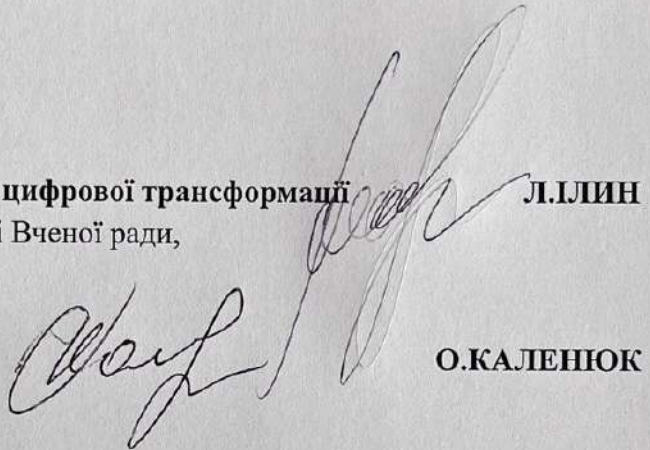 цифрової трансформації Л.ІЛИН
і Вченої ради,
О.КАЛЕНЮК